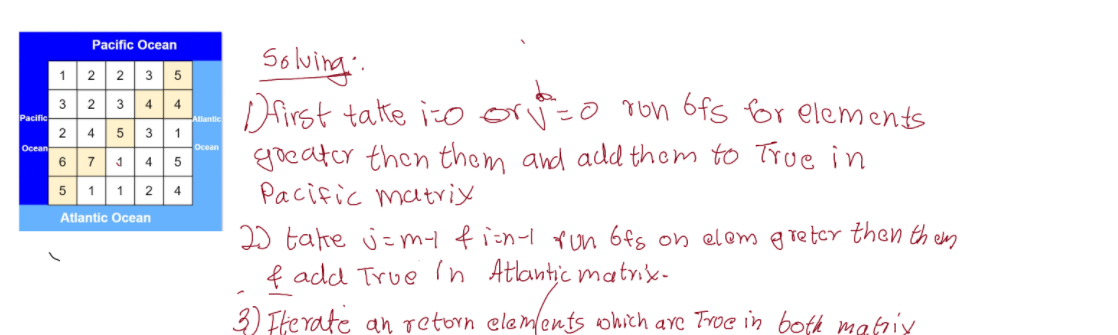 Pacific Ocean
1 2 2 3 5
3 2 3 4 4
Pacific
Atlantic
2 4 5 3 1
Ocean
Ocean
6 7 1 4 5
5 1 1 2 4
Atlantic Ocean
Solving:
1) first take i=0 or j=0 run bfs for elements
greater then them and add them to True in
Pacific matrix
2) take j=m-1 & i=n-1 run bfs on elem greter then them
& add True in Atlantic matrix.
3) Iterate an retorn elements which are True in both matrix